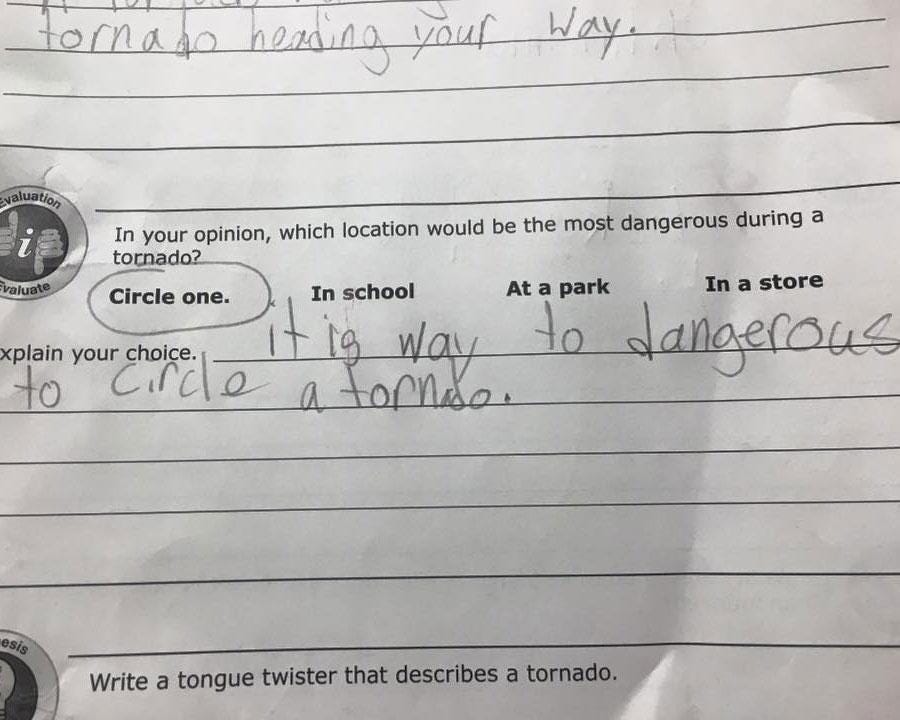 tornado heading your way.
Evaluation
In your opinion, which location would be the most dangerous during a
tornado?
i
Evaluate
Circle one. In school At a park In a store
xplain your choice. it is way to dangerous
to circle a tornado.
esis
Write a tongue twister that describes a tornado.